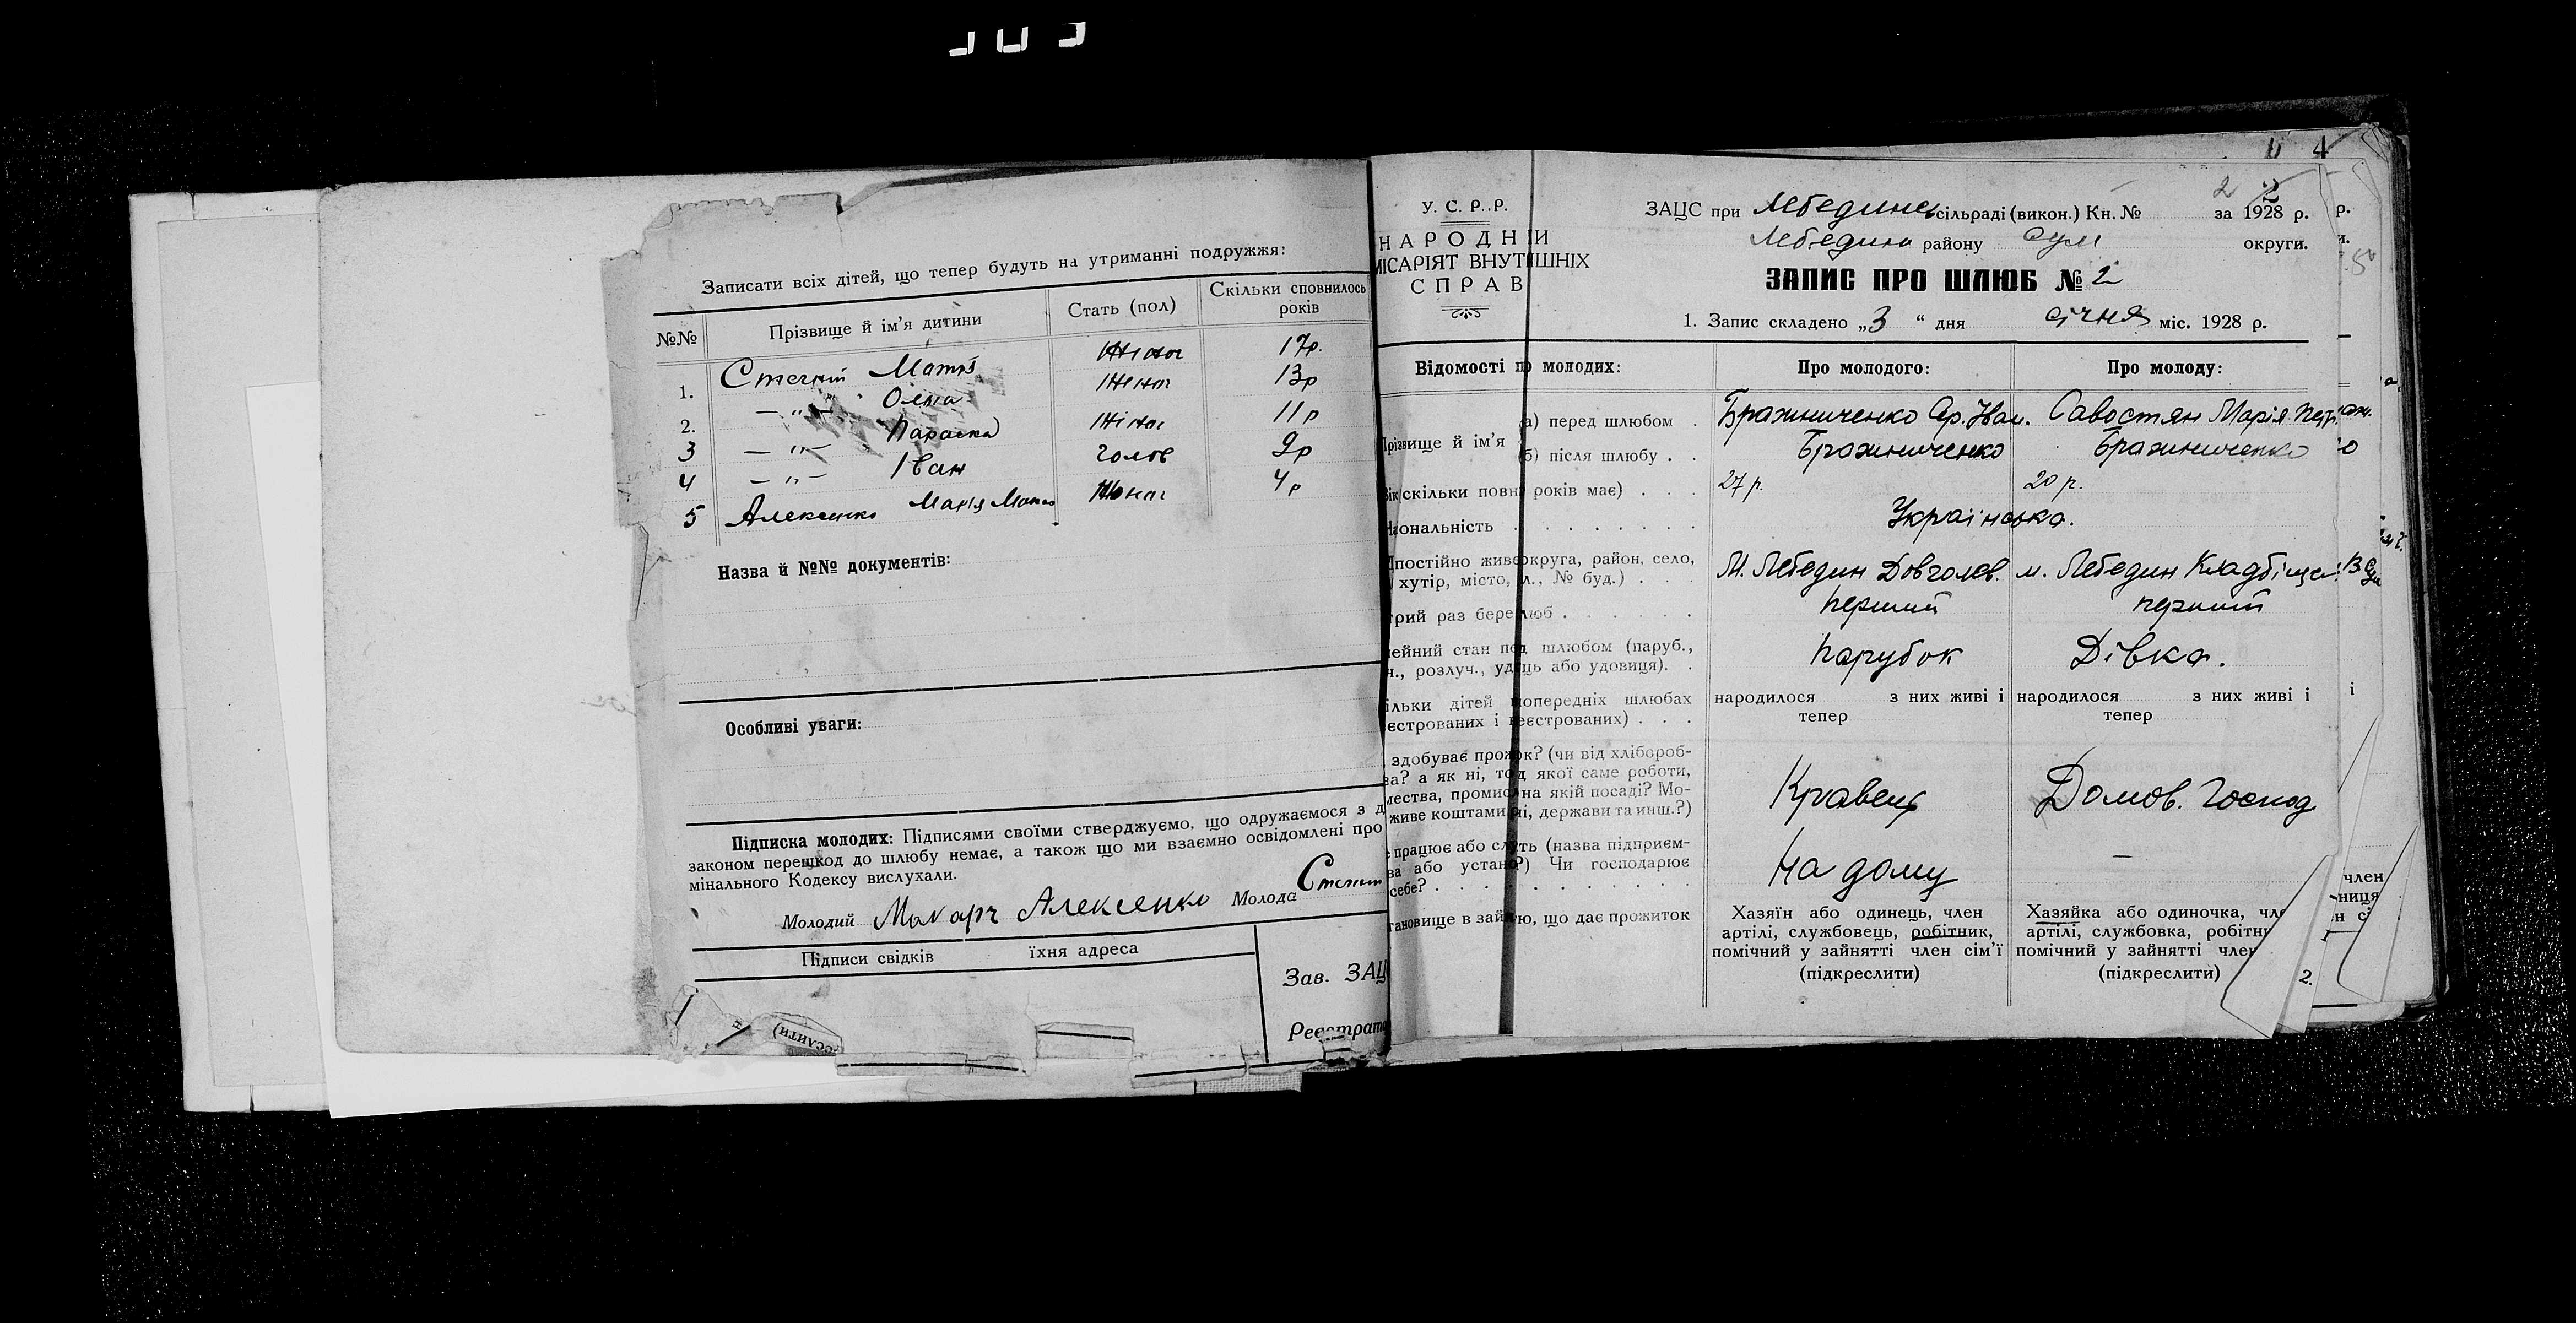 Записати всіх дітей, що тепер будуть на утриманні подружжя:
№№ Прізвище й ім'я дитини Стать (пол) Скільки сповнилось років
1. жіноч 17р.
2. — „ — Олена жіноч 13р
3 — „ — Параска жіноч 11р
4 — „ — Іван голов 9р
5 Алексенко Марія жіноч 4р
Назва й №№ документів:
Особливі уваги:
Підписка молодих: Підписями своїми стверджуємо, що одружаємося з д
законом перешкод до шлюбу немає, а також що ми взаємно освідомлені про
мінального Кодексу вислухали.
Молодий Макаръ Алексенко Молода
Підписи свідків їхня адреса
Зав. ЗАЦ
Реєстрато
У. С. Р. Р.
НАРОДНІЙ
МІСАРІЯТ ВНУТІШНІХ
СПРАВ
2 2
4
ЗАЦС при Лебединс сільраді (викон.) Кн. № за 1928 р.
Лебедин району Сум округи.
ЗАПИС ПРО ШЛЮБ № 2
1. Запис складено „3“ дня січня міс. 1928 р.
Відомості п молодих: Про молодого: Про молоду:
Прізвище й ім'я а) перед шлюбом . Бражниченко Ар. Іван. Савостян Марія Петр.
б) після шлюбу . . Бражниченко Бражниченко
Вік (скільки повн років має) . . . 27 р. 20 р.
Національність . . . . . . . . Українська.
постійно живе округа, район, село, М. Лебедин Довголев. м. Лебедин Кладбіще
хутір, місто, л., № буд.) . .
трий раз бере люб . . . . . . перший перший
ейний стан пед шлюбом (паруб., Парубок Дівка.
ч., розлуч., удець або удовиця). .
ільки дітей попередніх шлюбах народилося з них живі і народилося з них живі і
єстрованих і реєстрованих) . . . тепер тепер
здобуває прожок? (чи від хлібороб-
ва? а як ні, тод якої саме роботи, Кравець Домов. Господ
мества, промис на якій посаді? Мо-
живе коштами ні, держави та инш.?)
працює або слуть (назва підприєм- На дому —
ва або устано?) Чи господарює
себе? . . . . . . . . . . . .
тановище в зай ю, що дає прожиток Хазяїн або одинець, член Хазяйка або одиночка, чле
артілі, службовець, робітник, артілі, службовка, робітни
помічний у зайнятті член сім'ї помічний у зайнятті член
(підкреслити) (підкреслити)
2.